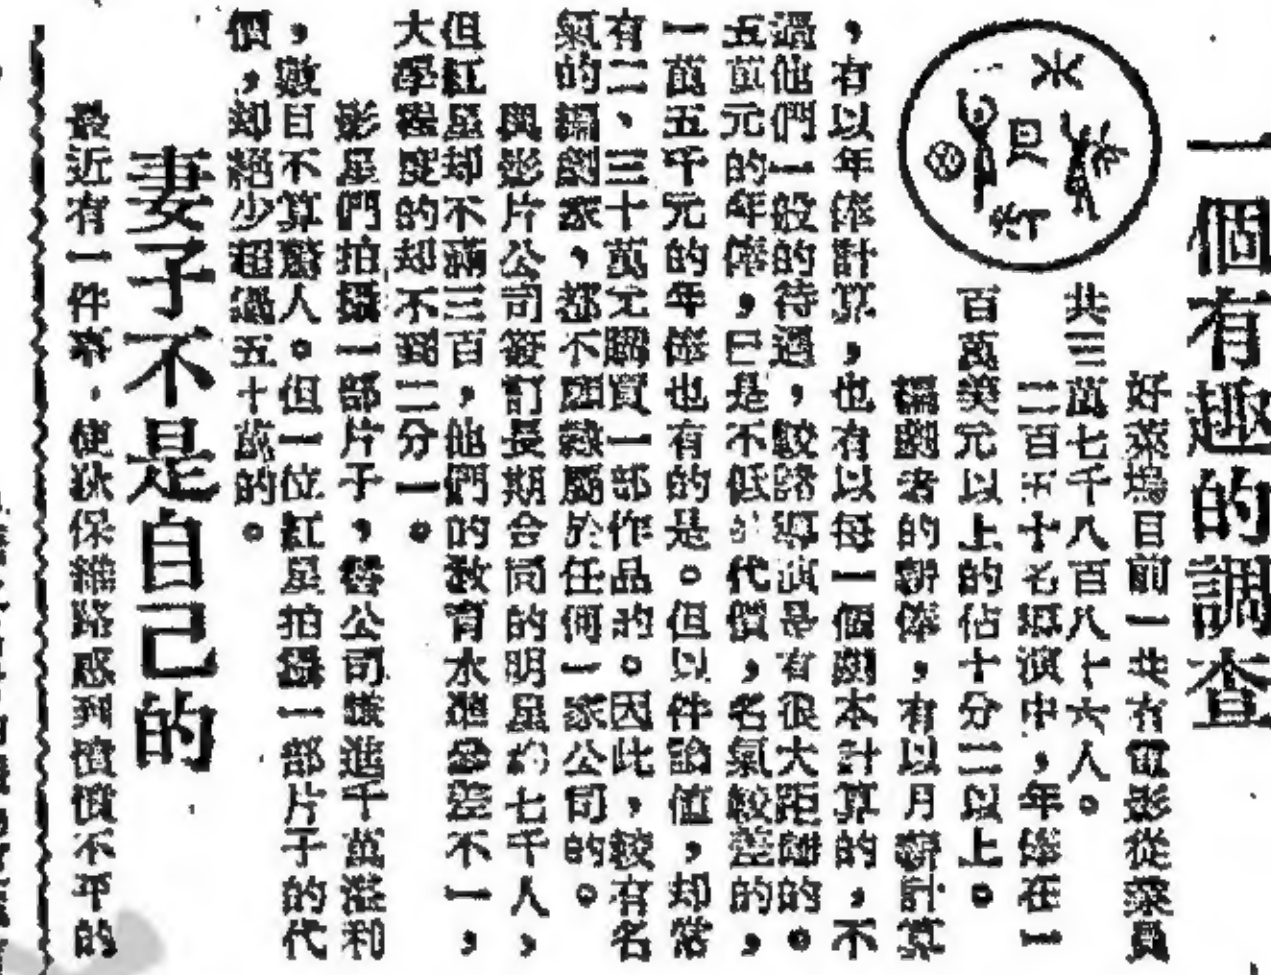 一個有趣的調查
好萊塢目前一共有電影從業員
共三萬七千八百八十六人。
二百五十名導演中，年俸在一
百萬美元以上的佔十分二以上。
編劇者的薪俸，有以月薪計算
，有以年俸計算，也有以每一個劇本計算的，不
過他們一般的待遇，較諸導演是有很大距離的。
五萬元的年俸，已是不低代價，名氣較差的，
一萬五千元的年俸也有的是。但以件論值，却常
有二、三十萬元購買一部作品的。因此，較有名
氣的編劇家，都不願隸屬於任何一家公司的。
與影片公司簽訂長期合同的明星約七千人，
但紅星却不滿三百，他們的教育水準參差不一，
大學程度的却不到二分一。
影星們拍攝一部片子，替公司賺進千萬溢利
，數目不算驚人。但一位紅星拍攝一部片子的代
價，却絕少超過五十萬的。
妻子不是自己的
最近有一件事，使狄保羅路感到憤憤不平的